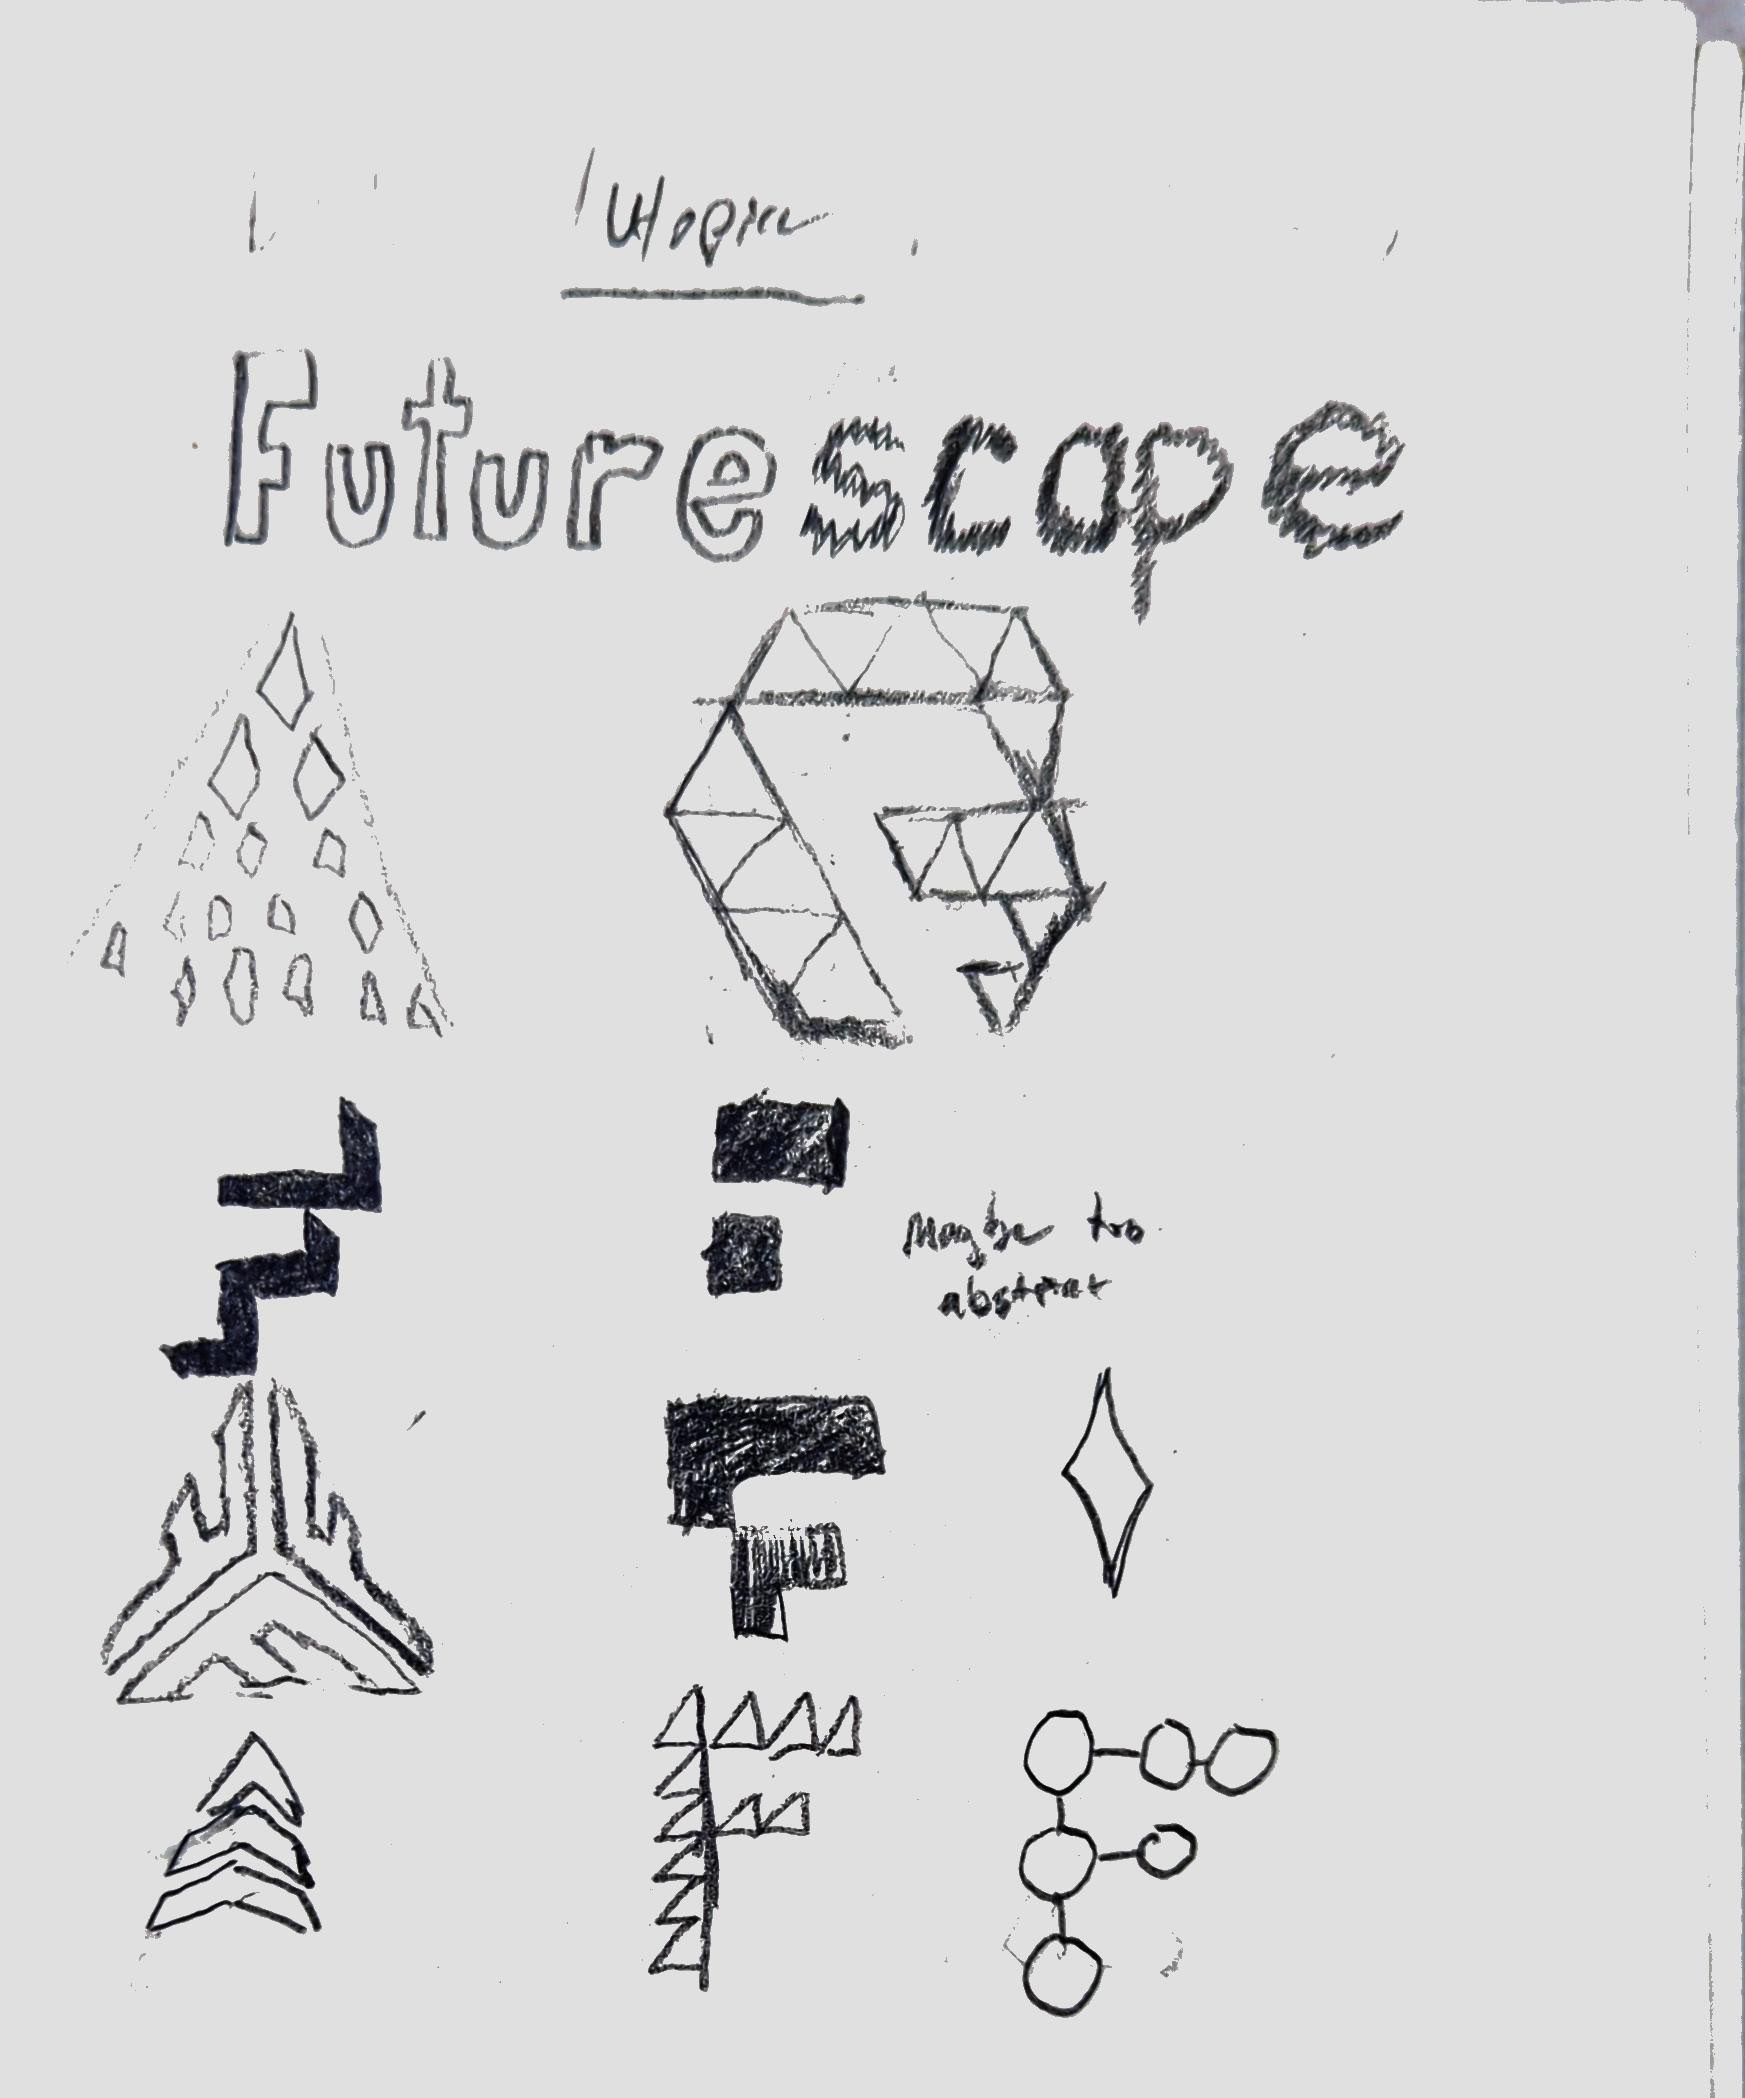 Utopia
Futurescape
Maybe too
abstract